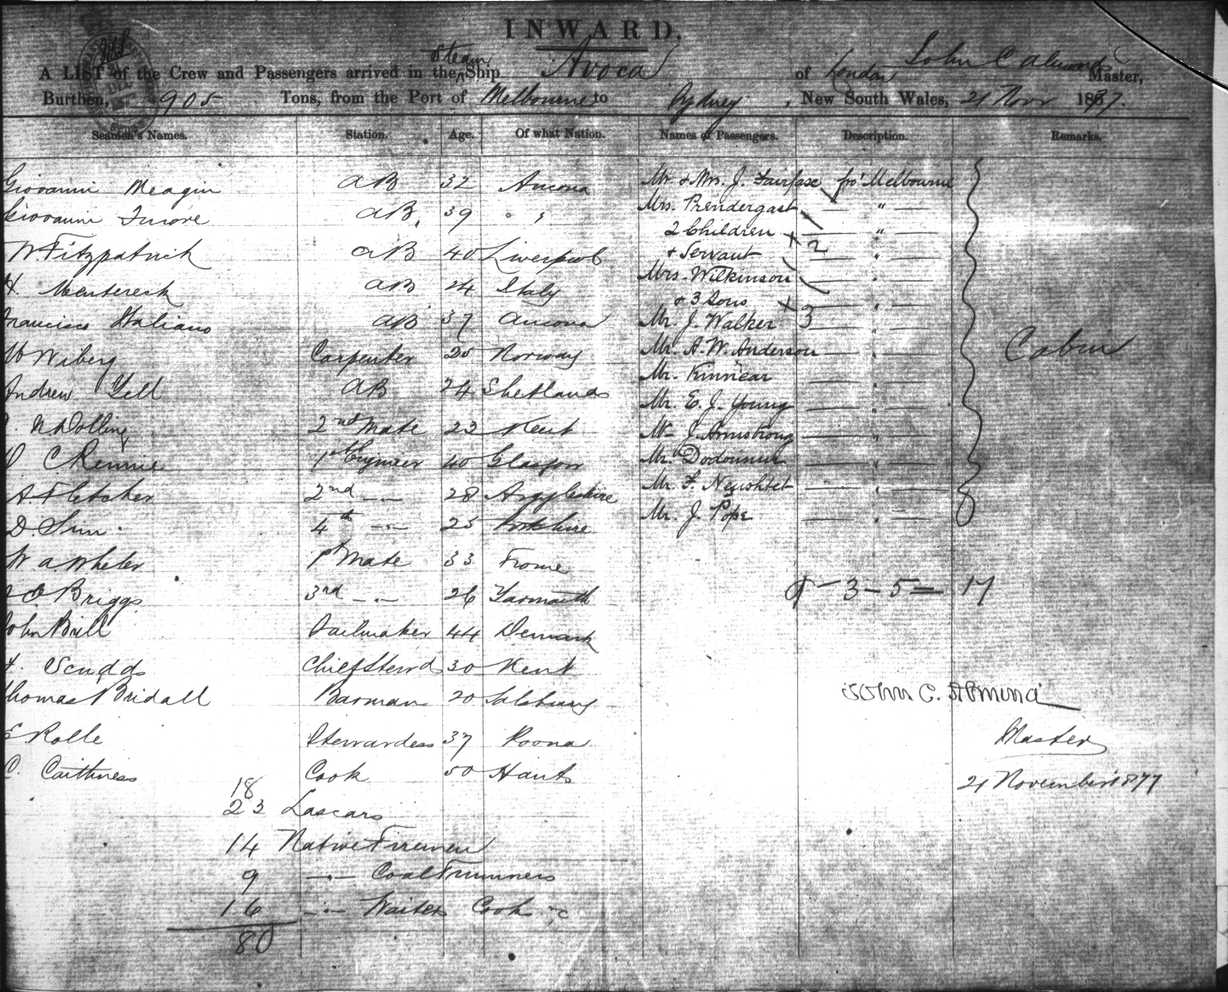 INWARD.
A LIST of the Crew and Passengers arrived in the Steam Ship Avoca of London John C Master,
Burthen, 905 Tons, from the Port of Melbourne to Sydney, New South Wales, 21 Novr 1877.
Seamen's Names. Station. Age. Of what Nation. Names of Passengers. Description. Remarks.
Giovanni AB 32 Ancona Mr. & Mrs. J. Fairfax fr Melbourne
Giovanni AB. 39 " " Mrs. Prendergast — " —
2 Children — " —
W Fitzpatrick AB 40 Liverpool + Servant + 2 — " —
Mrs. Wilkinson — " —
H. AB 24 Italy & 3 Sons + 3 — " —
Francisco Italiano AB 37 Ancona Mr. J. Walker — " —
Wiberg Carpenter 25 Norway Mr. A. W. Anderson — " — Cabin
Mr. Kinnear — " —
Andrew Yell AB 24 Shetlands Mr. E. J. Young — " —
Dolling 2nd Mate 23 Kent Mr J. Armstrong — " —
C Rennie 1st Engineer 40 Glasgow Mr. — " —
A. Fletcher 2nd —"— 28 Argyleshire Mr. F. — " —
D. Sim 4th —"— 25 Yorkshire Mr. J. Pope — " —
W A Wheler 1st Mate 33 Frome
Briggs 3rd —"— 26 Yarmouth 9 – 3 – 5 = 17
John Ball Sailmaker 44 Demark
Scudds Chief Stewd 30 Kent
Thomas Bridall Barman 20 Salsbury John C. Almond
E Rolle Stewardess 37 Poona Master
C. Caithness Cook 50 Hants 21 November 1877
18
23 Lascars
14 Native Firemen
9 —"— Coal Trimmers
16 —"— Waiters Cooks &c
80